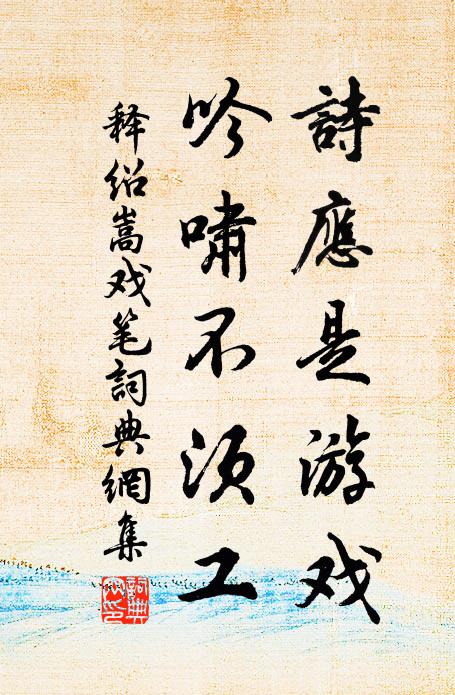 詩應是游戏
吟嘯不须工
释绍嵩戏笔詞典網集
詞典